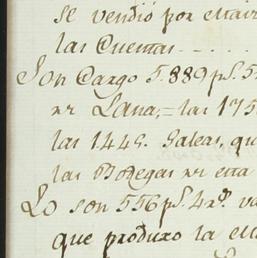 se vendió por
las Cuentas
Son Cargo 5.889 pS. 5
nr Lana, = las 175
las 1449. Galeas, qu
las Bodegas nr esta
Lo son 556 pS. 4 rs va
que produxo la